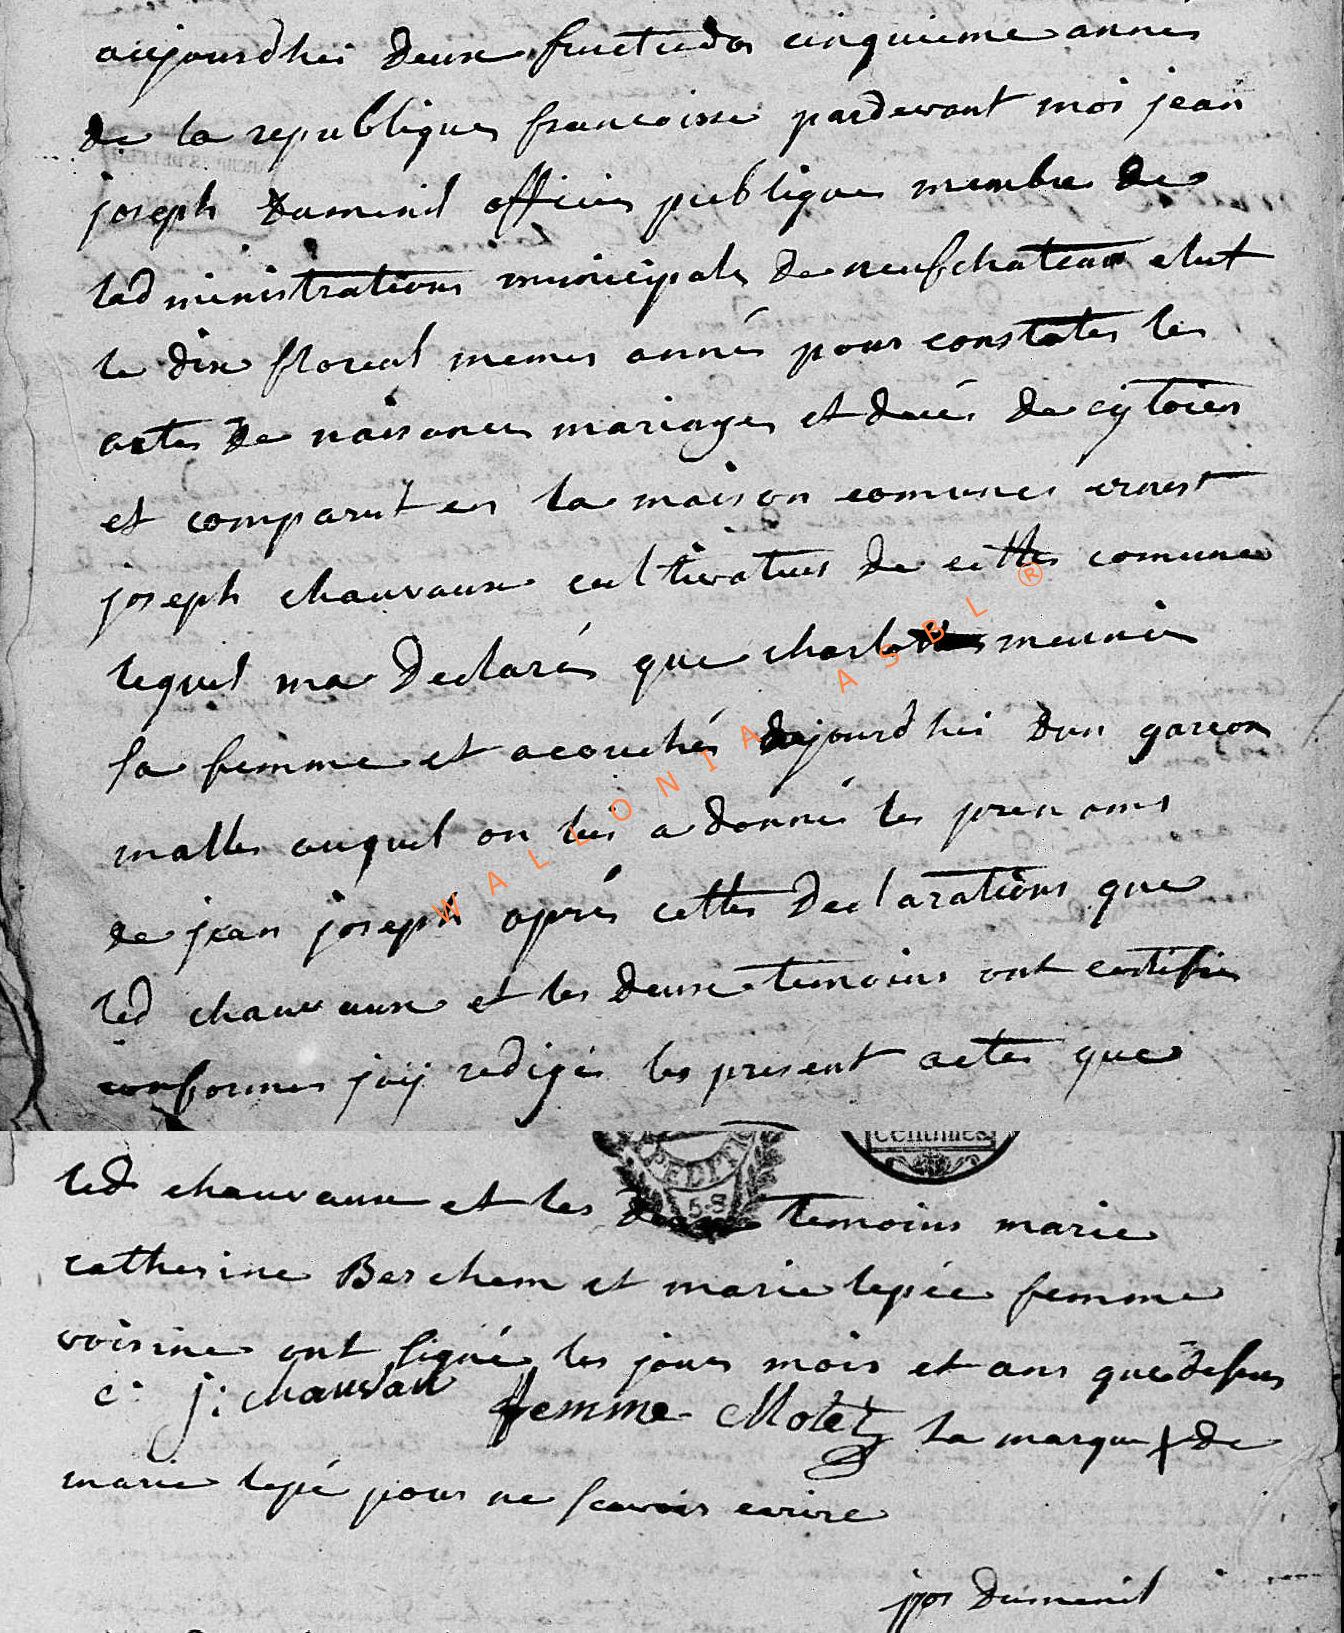 aujourdhui deux fructidor cinquieme année
de la republique francoise pardevant moi jean
joseph dumenil officier publique membre de
ladministrations municipale de neufchateau elut
le dix floreal memes année pour constater les
actes de naisances mariages et decés de cijtoien
et comparut en la maison comunes ernest
joseph chauvaux cultivateur de cettes comune
lequel ma declarés que charlottes meunier
sa femme et acouchés aujourdhui dun garcon
malles auquel on lui a donnés les prenoms
de jean joseph aprés cettes declarations que
led chauvaux et les deux temoins ont certifier
conformes jaij redigés les present actes que
led chauvaux et les deux temoins marie
catherine Berchem et marie lepée femme
voisine ont signé les jours mois et ans quedesus
e: j: chauvau femme Motet la marque X de
marie lepé pour ne scavoir ecrire
jjos dumenil
WALLONIA ASBL ®
CENTIMES